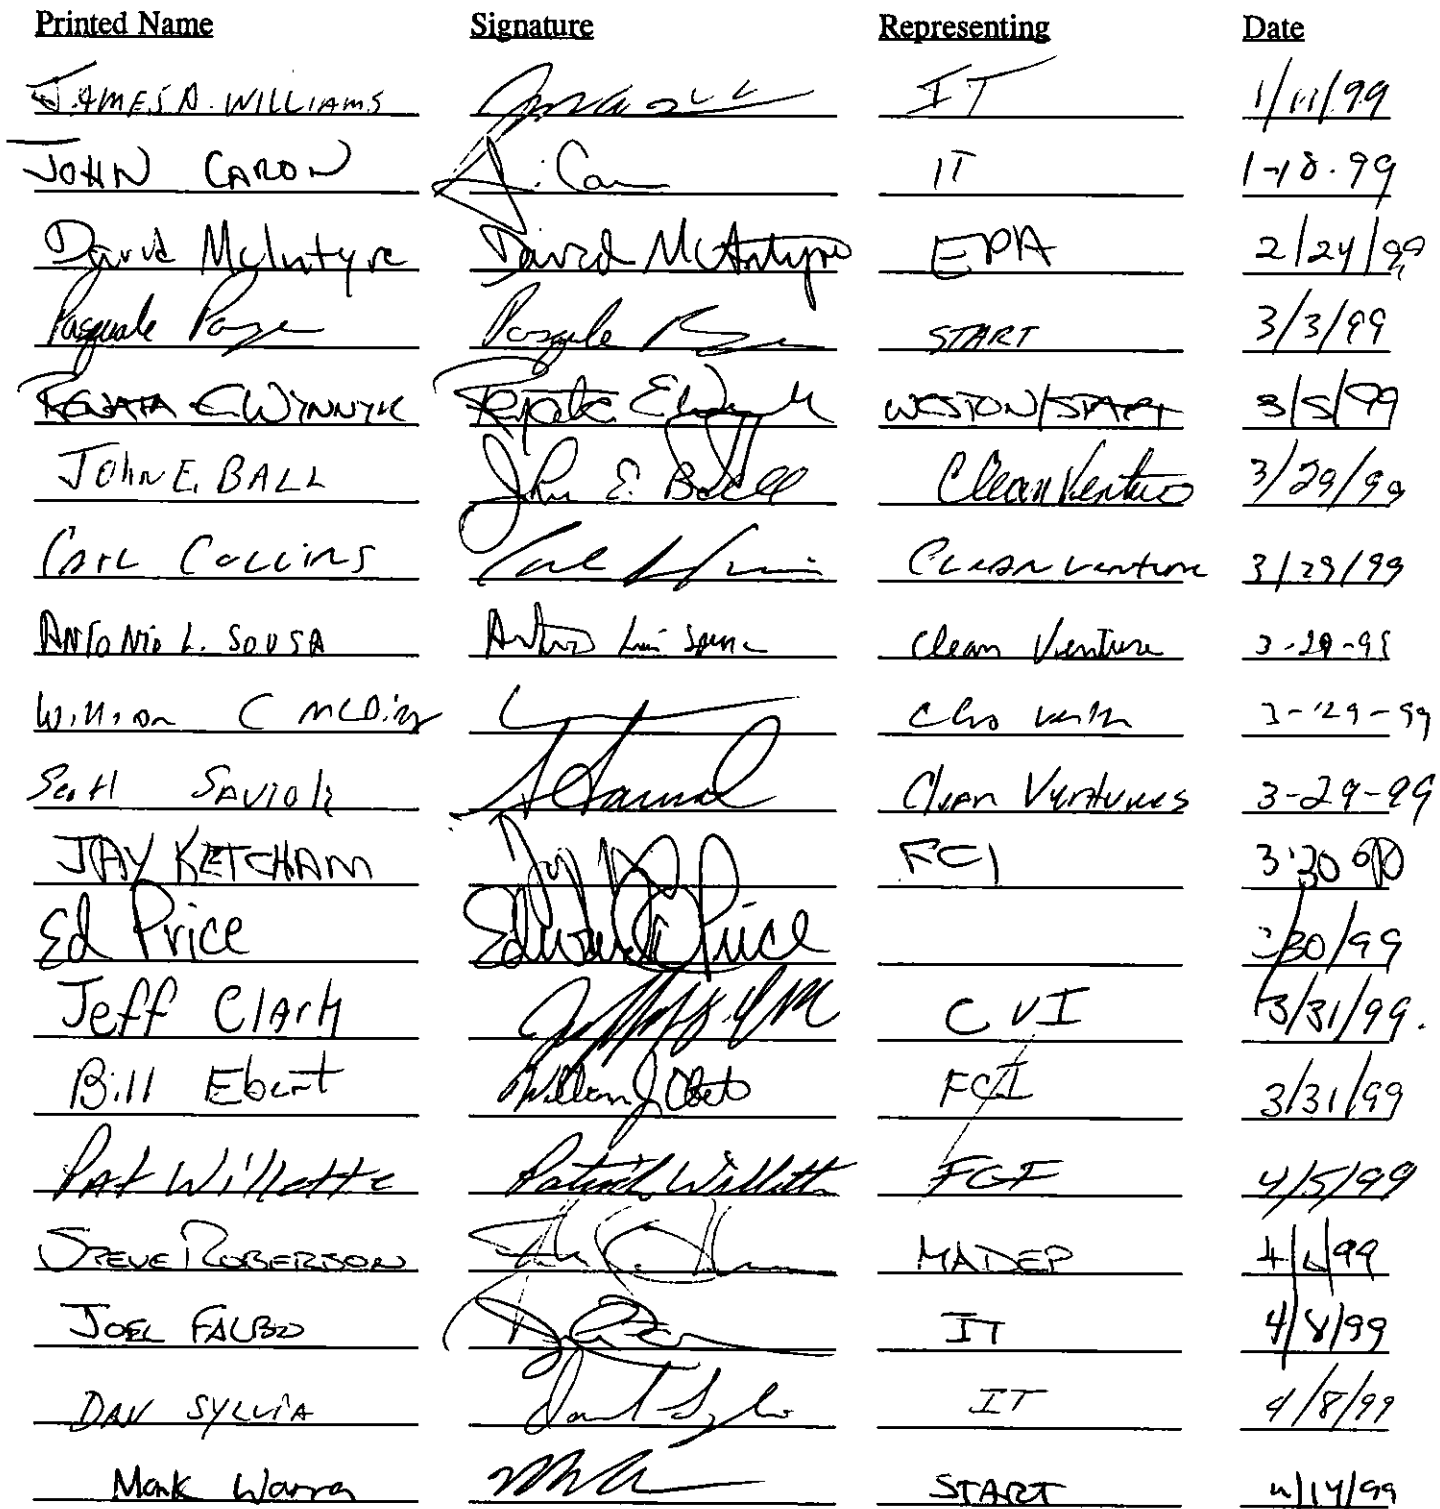 Printed Name Signature Representing Date
JAMES A. WILLIAMS IT 1/11/99
JOHN CARON J. Car IT 1-18-99
David McIntyre David McIntyre EPA 2/24/99
Pasquale Pasquale START 3/3/99
RENATA E WYNNYK Renata E WESTON/START 3/5/99
JOHN E. BALL John E. Ball Clean Venture 3/29/99
CARL COLLINS Carl Clean Venture 3/29/99
ANTONIO L. SOUSA Antonio Luis Sousa Clean Venture 3-29-99
C 3-29-99
Scott SAVIOLI Clean Ventures 3-29-99
JAY KETCHAM Jay FCI 3/30
Ed Price Edward Price 3/30/99
Jeff Clark CVI 3/31/99.
Bill Ebert William J Ebert FCI 3/31/99
Pat Willette Patrick Willette 4/5/99
STEVE ROBERSON MADEP 4/6/99
JOEL FALBO IT 4/8/99
DAN SYLVIA IT 4/8/99
Mark START 4/14/99